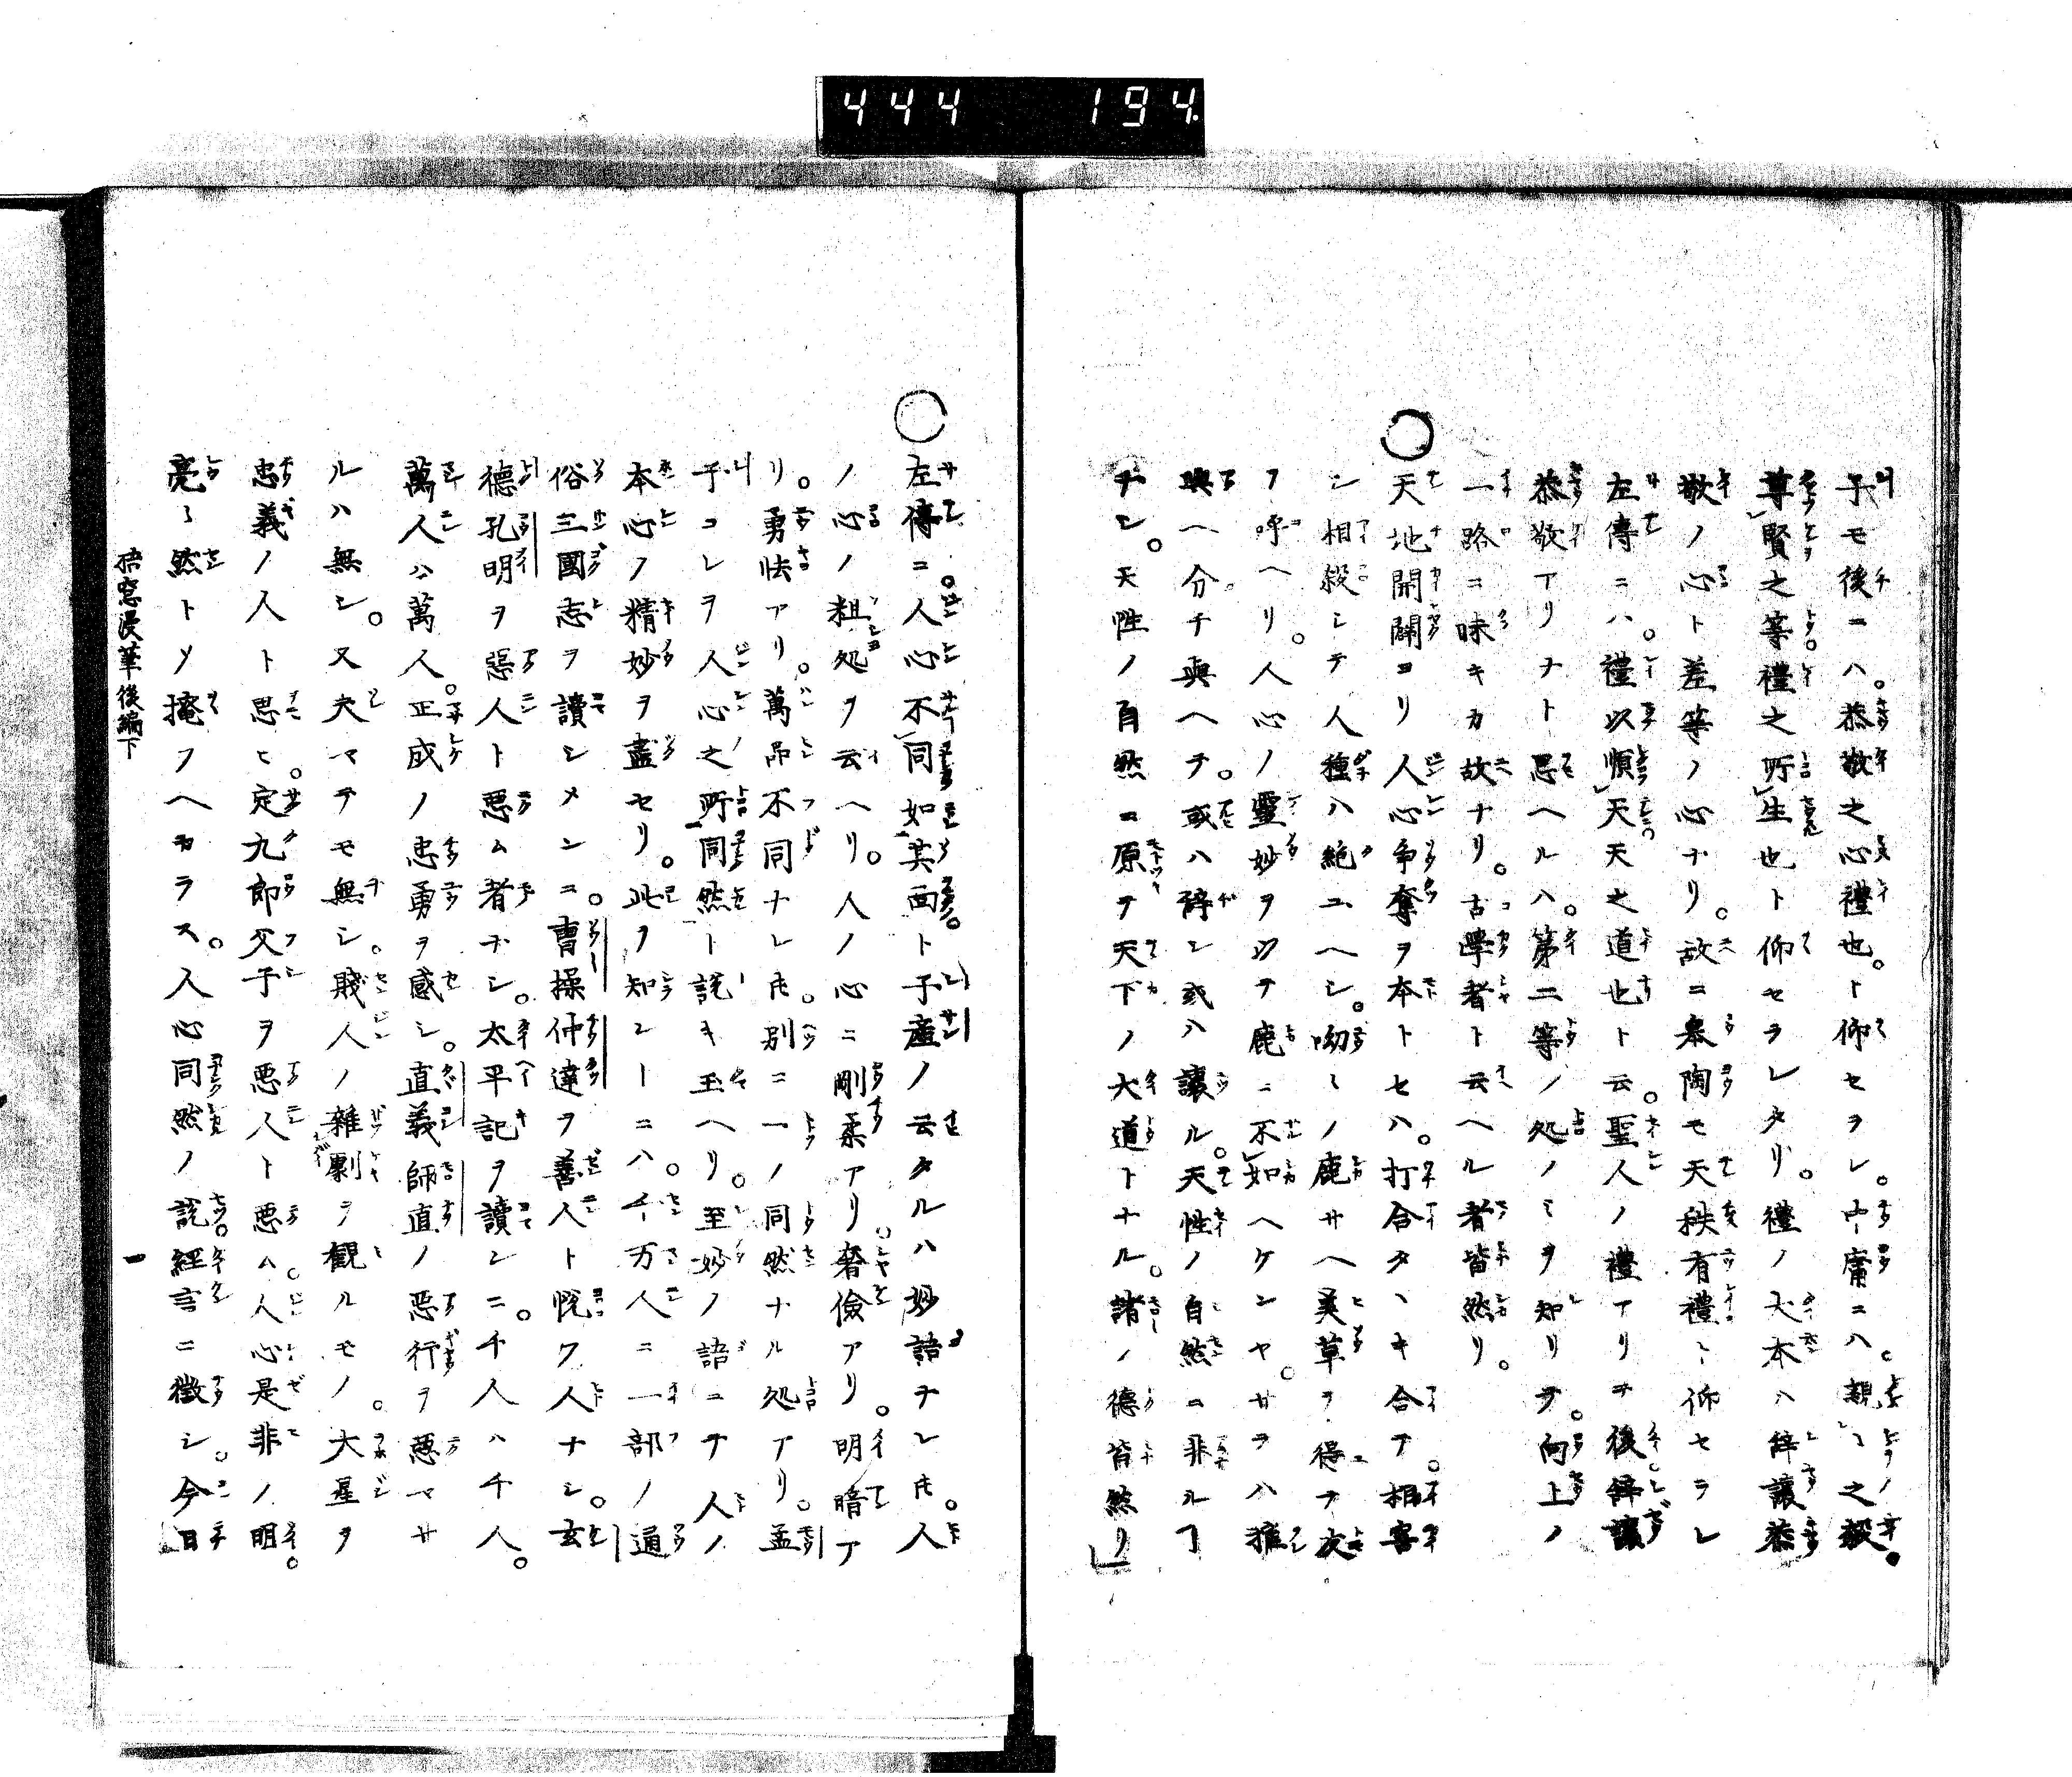 444 194.
子モ後ニハ。恭敬之心禮也。ト仰セヲレ。中庸ニハ。親〻之殺。
尊賢之等禮之所生也ト仰セラレタリ。禮ノ大本ハ辞讓恭
敬ノ心ト差等ノ心ナリ。故ニ皐陶モ天秩有禮ト仰セラレ
左傳ニハ。禮以順天天之道也ト云。聖人ノ禮アリヲ後。辞讓
恭敬アリナト思ヘルハ。第二等ノ処ノミヲ知リヲ。向上ノ
一路ニ味キカ故ナリ。古學者ト云ヘル者皆然リ。
○天地開闢ヨリ人心争奪ヲ本トセハ。打合タヽキ合ア。相害
シ相殺シテ人種ハ絶ユヘシ。呦〻ノ鹿サヘ美草ヲ得ヲ次
フ呼ヘリ。人心ノ靈妙ヲ以テ鹿ニ不如ヘケンヤ。サヲハ推
與ヘ分チ與ヘテ。或ハ辞シ或ハ讓ル。天性ノ自然ニ非ルヿ
ナシ。天性ノ自然ニ原ヲ天下ノ大道トナル。諸ノ德皆然リ
○左傳ニ。人心不同如其面。ト子産ノ云タルハ妙語ナレ𪜈。人
ノ心ノ粗処ヲ云ヘリ。人ノ心ニ剛柔アリ。奢儉アリ。明暗ア
リ。勇怯アリ。萬品不同ナレ𪜈。別ニ一ノ同然ナル処アリ。孟
子コレヲ人心之所同然ト説キ玉ヘリ。至妙ノ語ニテ人ノ
本心ノ精妙ヲ盡セリ。此ヲ知シーニハ。千万人ニ一部ノ通
俗三國志ヲ讀シメンニ。曹操仲達ヲ善人ト悦ク人ナシ。玄
德孔明ヲ惡人ト惡ム者ナシ。太平記ヲ讀シニ。千人ハ千人。
萬人ハ萬人。正成ノ忠勇ヲ感シ。直義師直ノ惡行ヲ惡マサ
ルハ無シ。又夫マテモ無シ。賤人ノ雜劇ヲ観ルモノ。大星ヲ
忠義ノ人ト思ヒ。定九郎父子ヲ悪人ト悪ム。人心是非ノ明。
亮〻然トメ掩フヘカラス。人心同然ノ説。經言ニ徴シ。今日
梧窓漫筆後編下
一